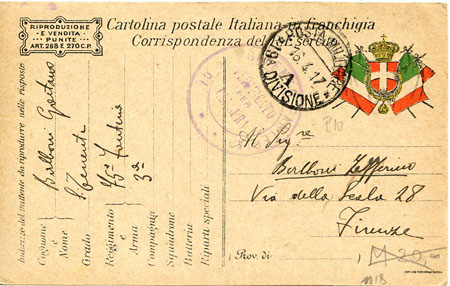 RIPRODUZIONE
E VENDITA
PUNITE
ART. 268 E 270 C.P.
Cartolina postale Italiana in franchigia
Corrispondenza del R. Esercito
POSTA MILITARE
16.4.17
A
DIVISIONE
Indirizzo del mittente da riprodurre nelle risposte
Cognome e Nome Borlboni Gaetano
Grado S. Tenente
Reggimento e Arma 75° Fanteria
Compagnia 3a
Squadrone
Batteria
Riparti speciali
P10
Al Sigre
Borlboni Zefferino
Via della Scala 28
Firenze
(Prov. di
M 20,
1918